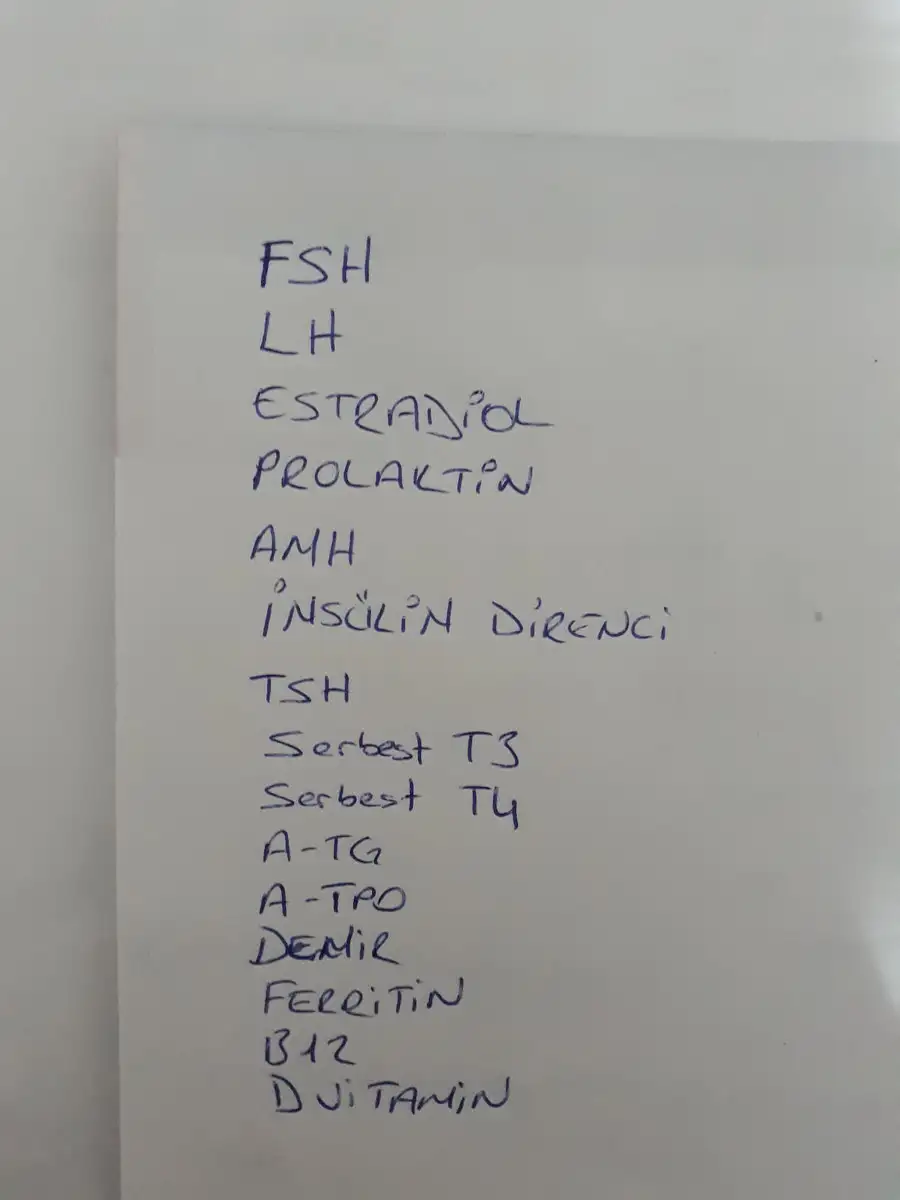 FSH
LH
ESTRADİOL
PROLAKTİN
AMH
İNSÜLİN DİRENCİ
TSH
Serbest T3
Serbest T4
A-TG
A-TPO
DEMİR
FERRİTİN
B12
D VİTAMİN